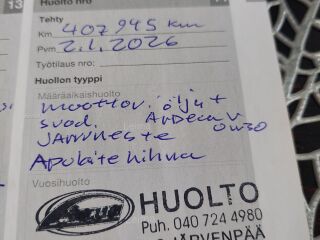 13
Huolto nro
14
Tehty
Km 407945 km
Pvm 2.1.2026
Työtilaus nro:
Huollon tyyppi
Määräaikaishuolto
moottori öljyt
suod. Ardeca V
Jarruneste 0W30
Apulaite hihna
Vuosihuolto
HUOLTO
Puh. 040 724 4980
JÄRVENPÄÄ